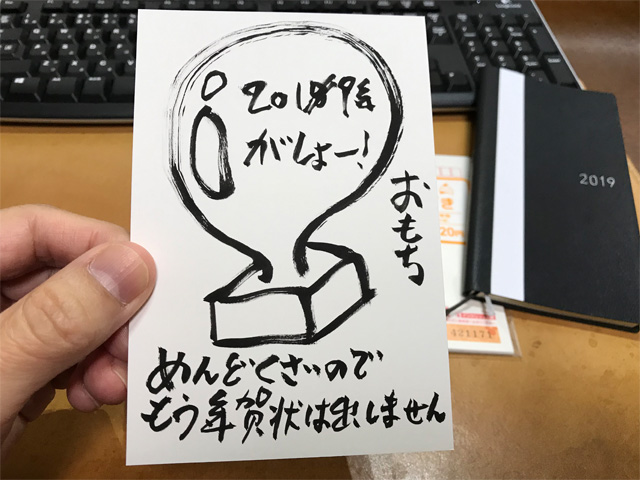 2019年
がしょー!
おもち
めんどくさいので
もう年賀状は出しません
2019